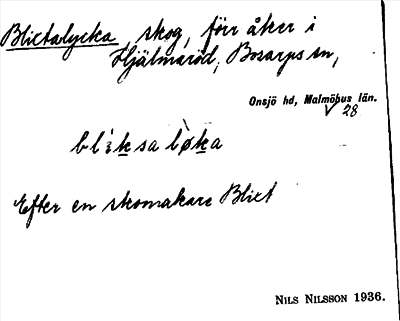 Blixtalycka, skog, förr åker i
Hjälmaröd, Bosarps sn,
Onsjö hd, Malmöhus län.
28
Efter en skomakare Blixt
NILS NILSSON 1936.